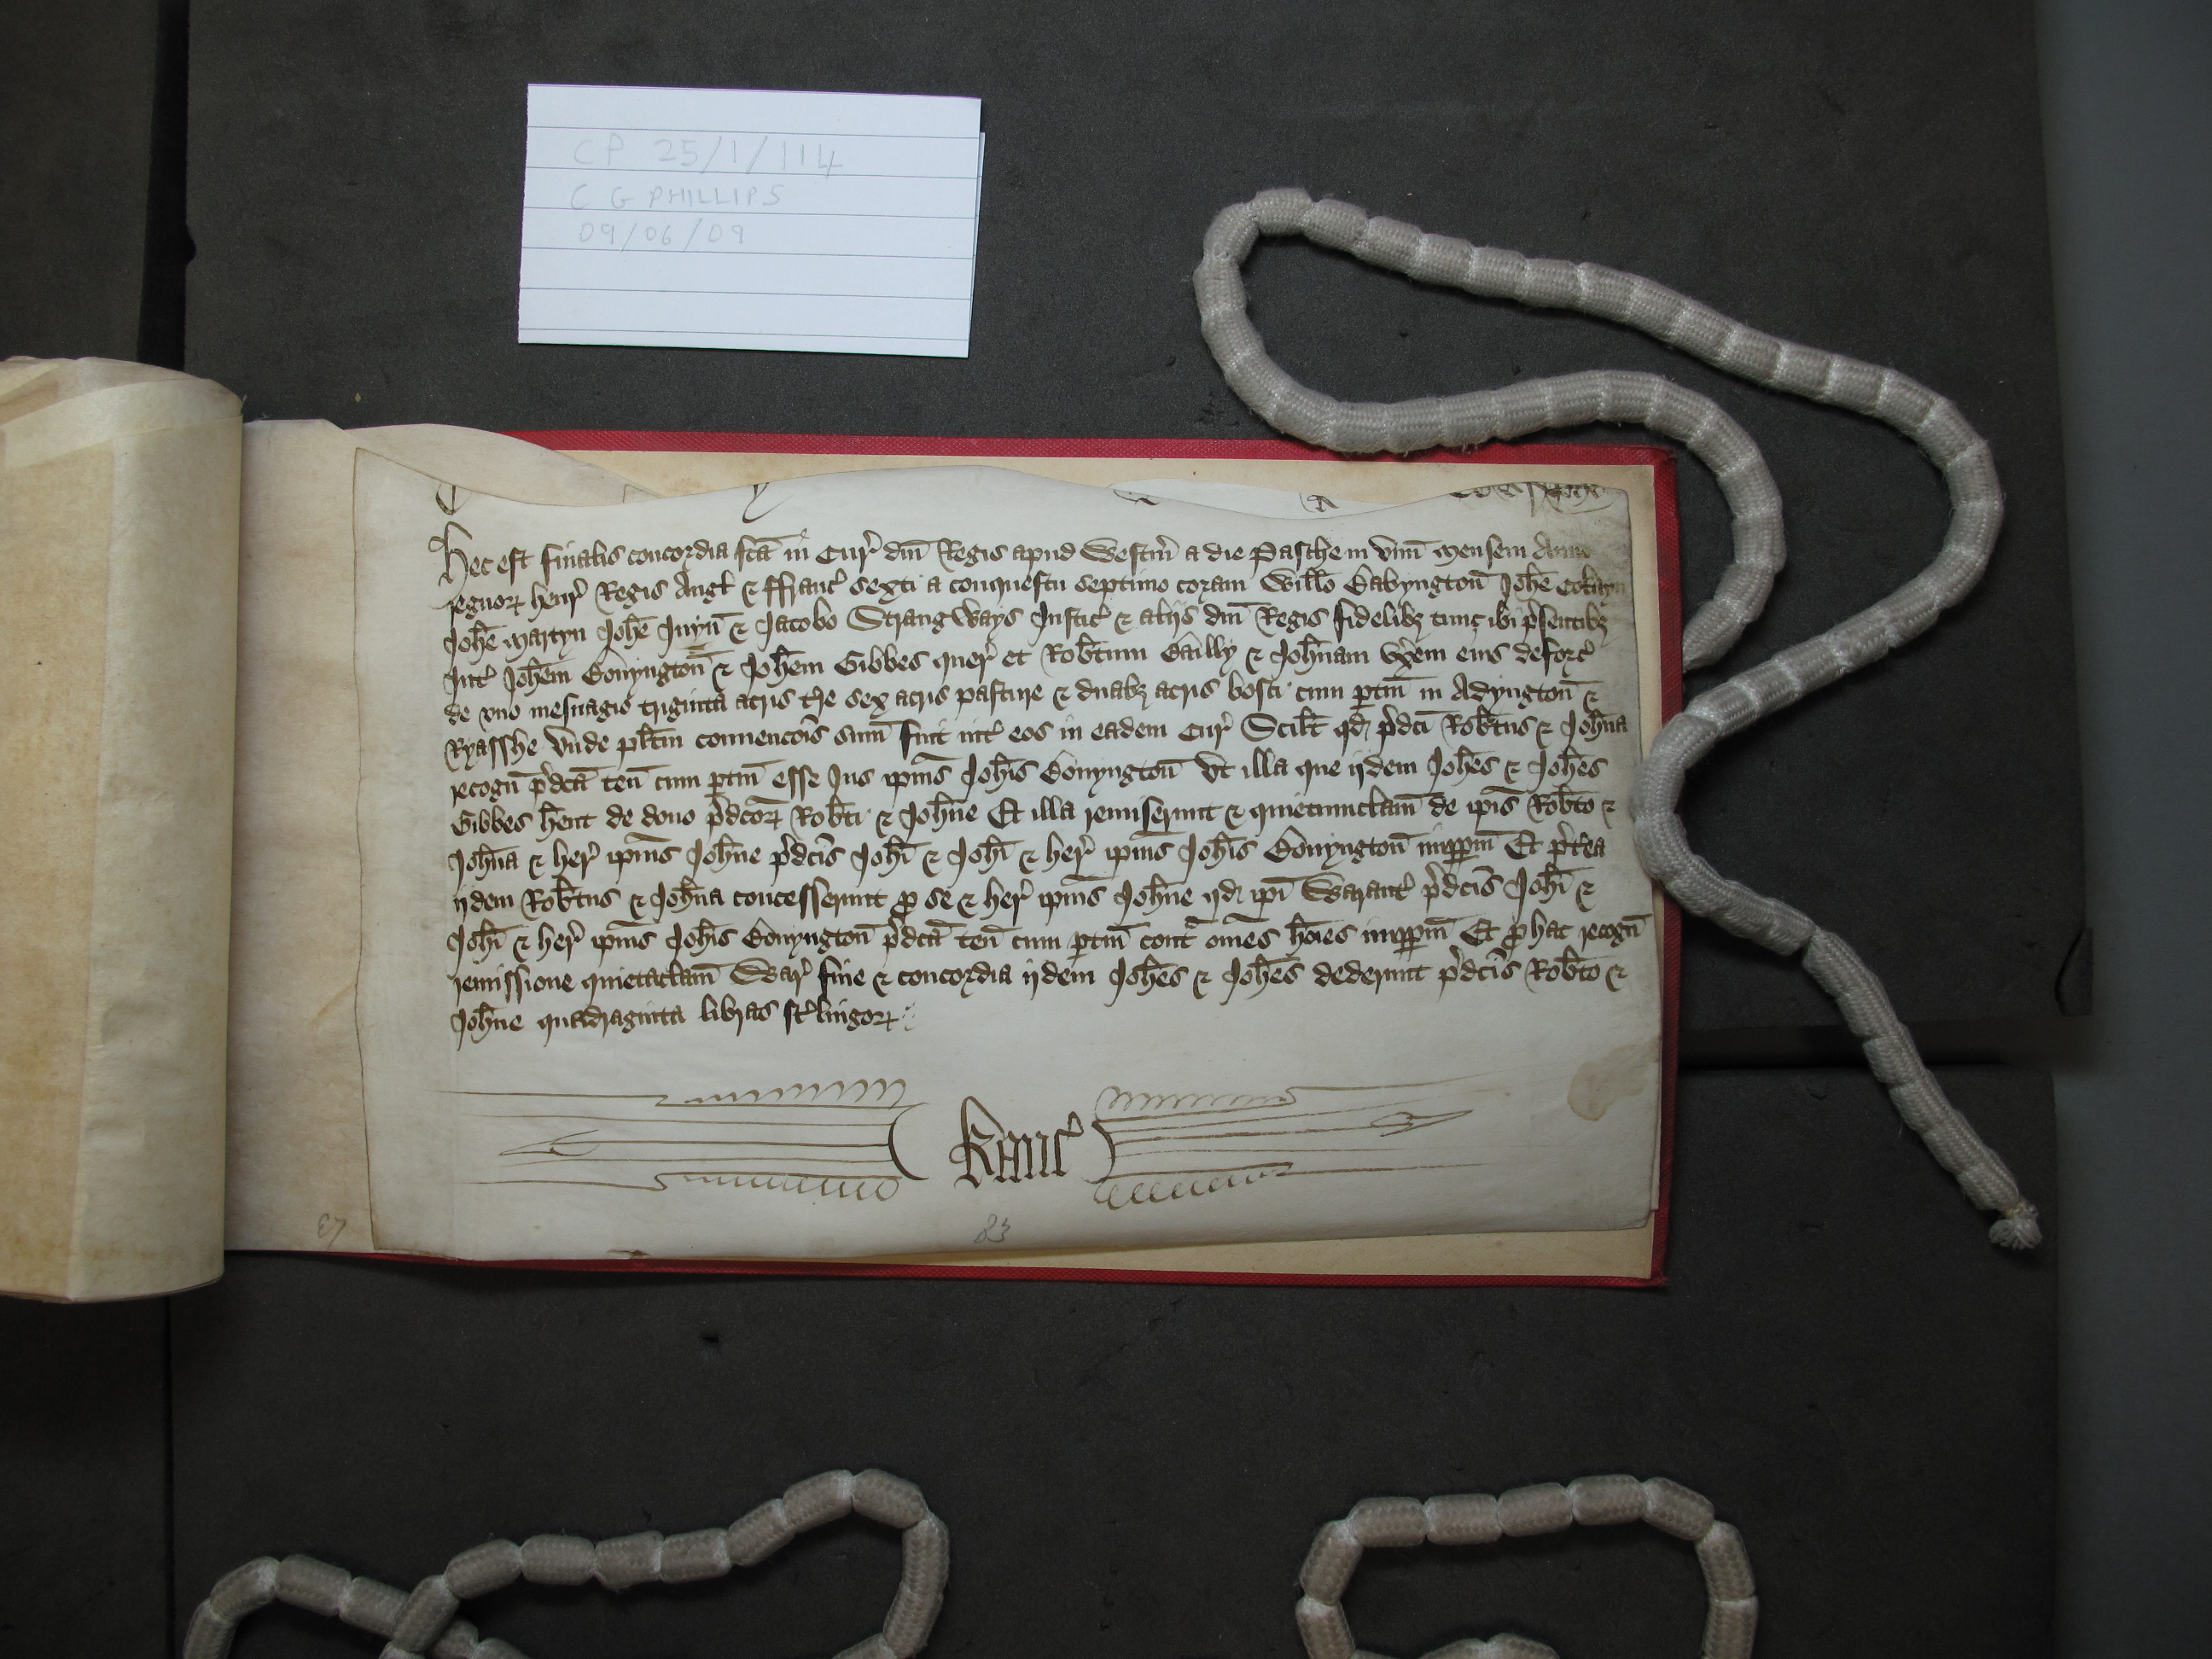 CP 25/1/114
C G PHILLIPS
09/06/09
Hec est finalis concordia fcā in Cur̉ dn̄i Regis apud Westm̄ a die Pasche in vnū mensem Anno
regnoꝝ Henr̉ Regis Angł & ffranc̉ sexti a conquestu septimo coram Willō Babyngton̄ Joh̄e Cotteyn
Joh̄e Martyn Joh̄e Juyn̄ & Jacobo Strangways Justic̉ & aliis dn̄i Regis fidelibꝫ tunc ibi p̉sentibꝫ
Int̉ Joh̄em Bonyngton̄ & Joh̄em Gibbes quer̉ et Rob̄tum Bailly & Joh̄nam vx̉em eius deforc̉
de vno mesuagio triginta acris t̉re sex acris pasture & duabꝫ acris bosci cum ptin̄ in Adyngton̄ &
Ryasshe Vnde pl̄itm conuenc̄ois sum̄ fuit int̉ eos in eadem Cur̉ Scilt̄ qd̛ p̉dc̄i Rob̄tus & Joh̄na
recogn̄ p̉dcā ten̄ cum ptin̄ esse Jus ip̄ius Joh̄is Bonyngton̄ Vt illa que ijdem Joh̄es & Joh̄es
Gibbes h̄ent de dono p̉dc̄oꝝ Rob̄ti & Joh̄ne Et illa remiserunt & quietumclam̄ de ip̄is Rob̄to &
Joh̄na & her̉ ip̄ius Joh̄ne p̉dc̄is Joh̄i & Joh̄i & her̉ ip̄ius Joh̄is Bonyngton̄ imꝑpm̄ Et p̉t̉ea
ijdem Rob̄tus & Joh̄na concesserunt ꝓ se & her̉ ip̄ius Joh̄ne qd̛ ip̄i Warant̉ p̉dc̄is Joh̄i &
Joh̄i & her̉ ip̄ius Joh̄is Bonyngton̄ p̉dcā ten̄ cum ptin̄ cont̉ om̄es hōies imꝑpm̄ Et ꝓ hac recogn̄
remissione quietaclam̄ War̉ fine & concordia ijdem Joh̄es & Joh̄es dederunt p̉dc̄is Rob̄to &
Joh̄ne quadraginta libras st̉lingoꝝ
Kanc̉
87
83